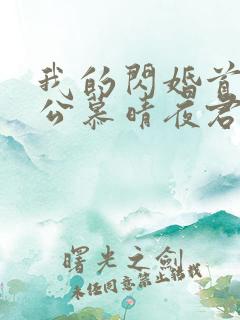 我的閃婚首
公慕晴夜君
曙光之劍
未經同意禁止轉載